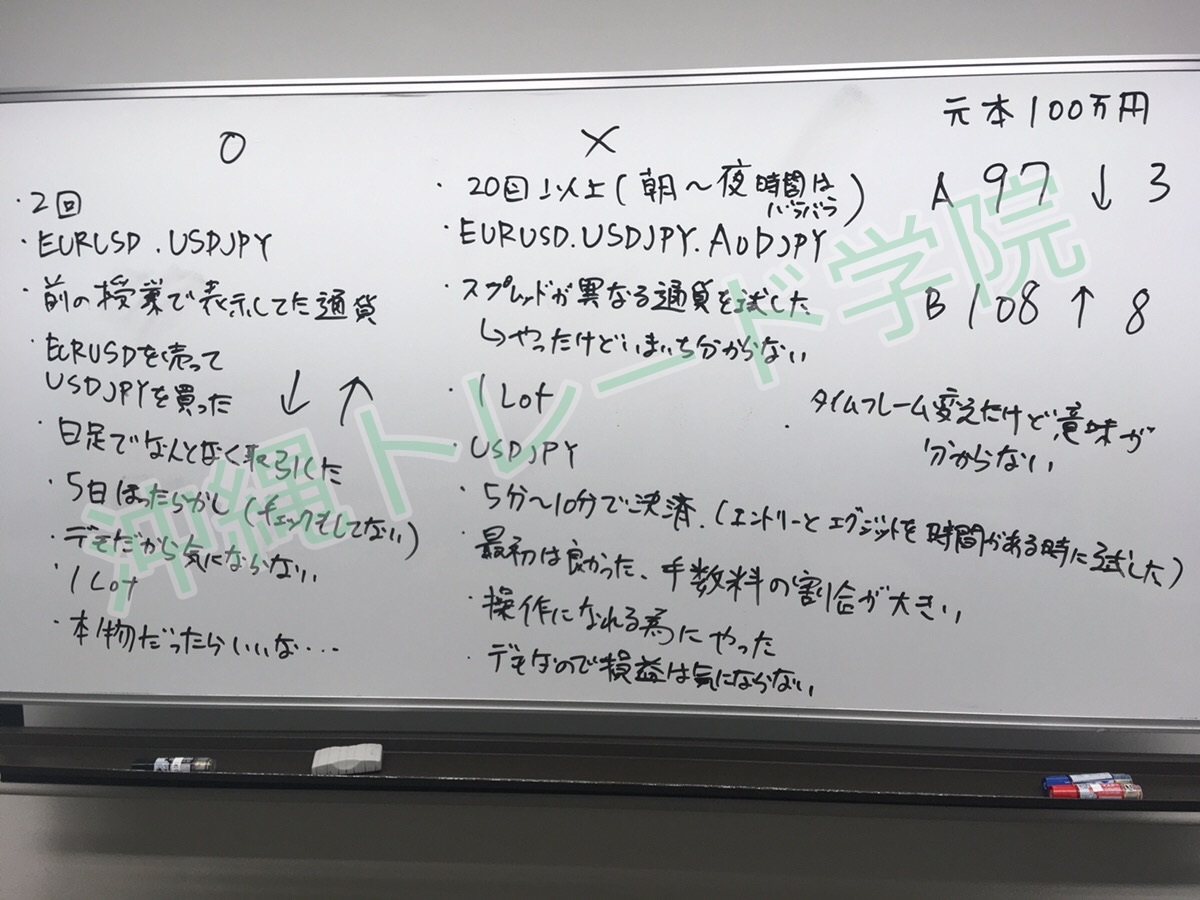 ○
・2回
・EURUSD.USDJPY
・前の授業で表示してた通貨
・EURUSDを売って
USDJPYを買った ↓ ↑
・日足でなんとなく取引した
・5日ほったらかし(チェックもしてない)
・デモだから気にならない
・1Lot
・本物だったらいいな・・・
×
・20回以上(朝〜夜時間は
バラバラ)
・EURUSD.USDJPY.AUDJPY
・スプレッドが異なる通貨を試した
↳やったけどいまいち分からない
・1Lot
・USDJPY
・5分〜10分で決済.(エントリーとエグジットを時間がある時に試した)
・最初は良かった、手数料の割合が大きい
・操作になれる為にやった
・デモなので損益は気にならない
元本100万円
A 97 ↓ 3
B 108 ↑ 8
・タイムフレーム変えたけど意味が
分からない
沖縄トレード学院